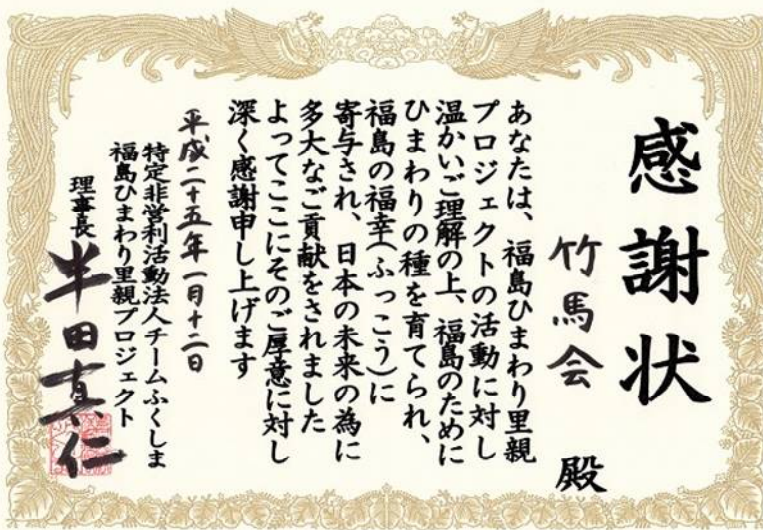 感謝状
竹馬会 殿
あなたは、福島ひまわり里親
プロジェクトの活動に対し
温かいご理解の上、福島のために
ひまわりの種を育てられ、
福島の福幸(ふっこう)に
寄与され、日本の未来の為に
多大なご貢献をされました
よってここにそのご厚意に対し
深く感謝申し上げます
平成二十五年一月十二日
特定非営利活動法人チームふくしま
福島ひまわり里親プロジェクト
理事長 半田真仁